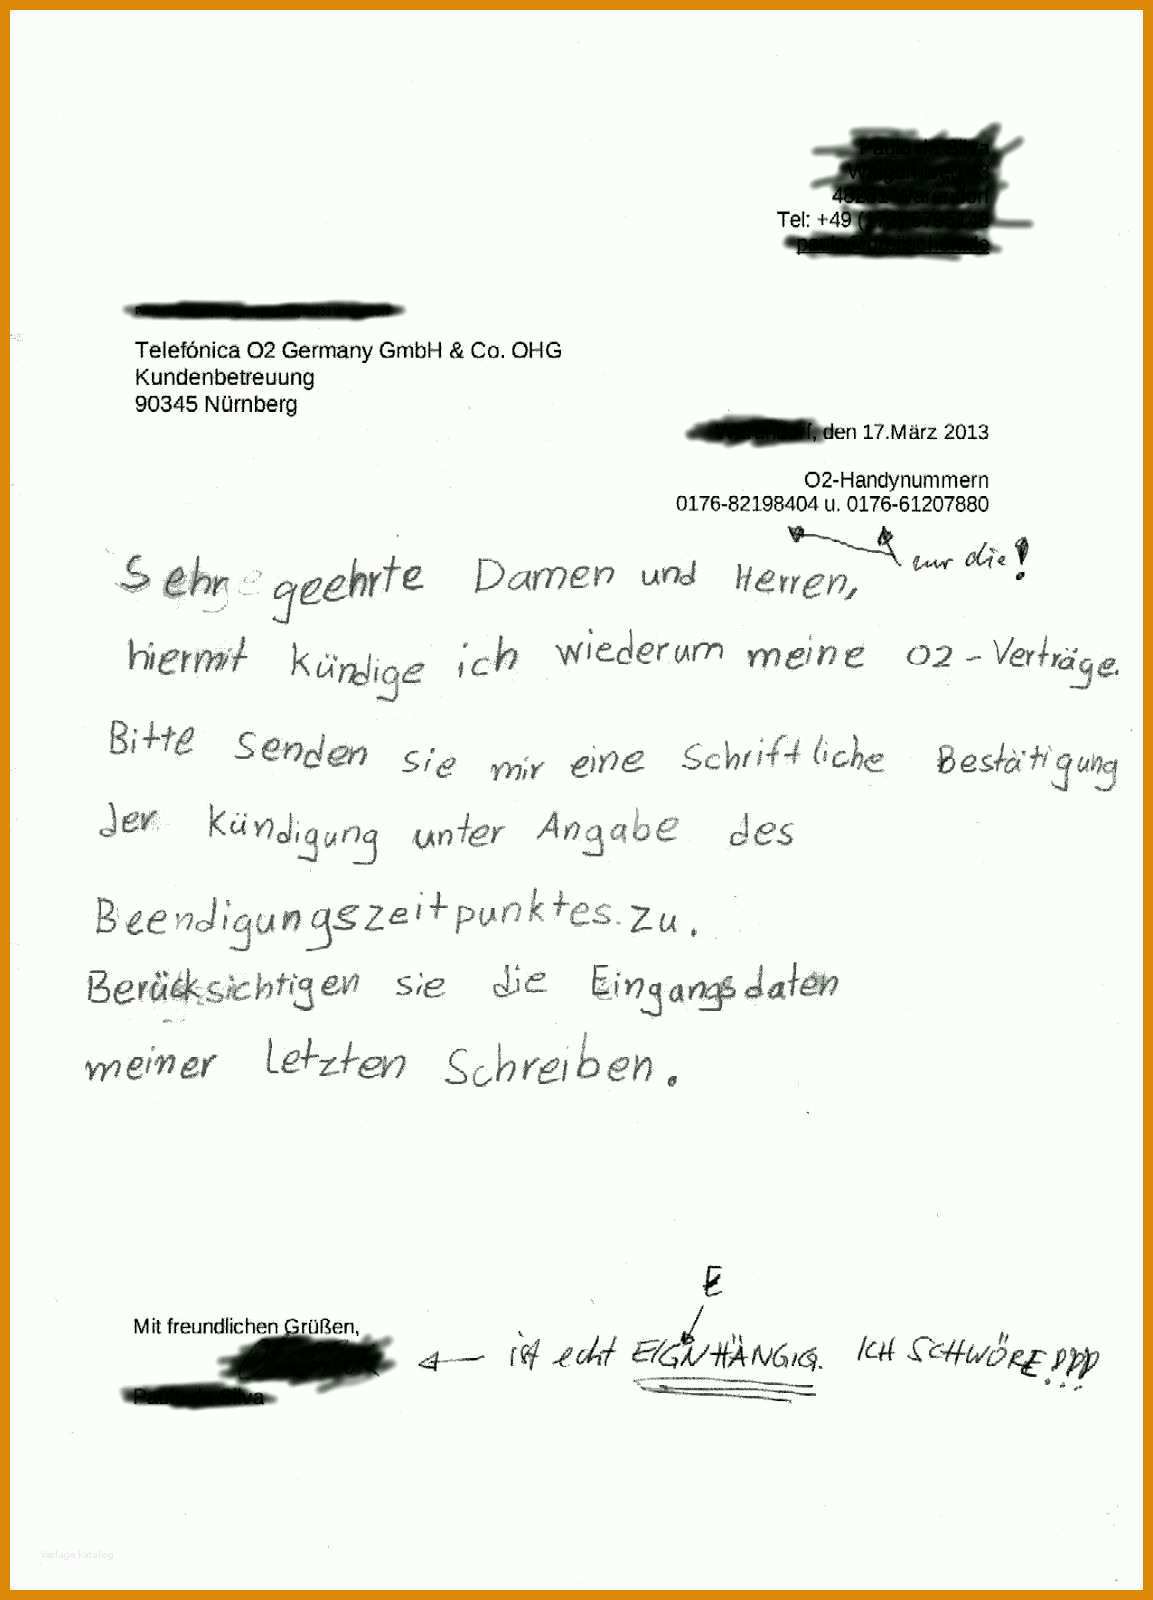 Tel: +49
Telefónica O2 Germany GmbH & Co. OHG
Kundenbetreuung
90345 Nürnberg
den 17.März 2013
O2-Handynummern
0176-82198404 u. 0176-61207880
nur die!
Sehr geehrte Damen und Herren,
hiermit kündige ich wiederum meine O2-Verträge.
Bitte senden sie mir eine Schriftliche Bestätigung
der Kündigung unter Angabe des
Beendigungszeitpunktes zu.
Berücksichtigen sie die Eingangsdaten
meiner letzten Schreiben.
E
Mit freundlichen Grüßen,
ist echt EIGNHÄNGIG. ICH SCHWÖRE!!!
vorlage katalog